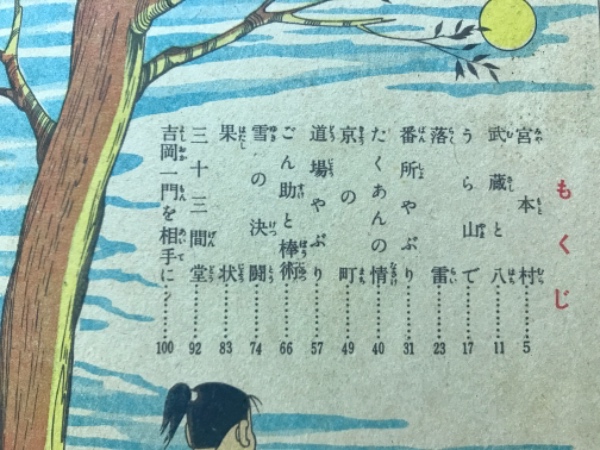 もくじ
宮本村……5
武蔵と八……11
うら山で……17
落雷……23
番所やぶり……31
たくあんの情……40
京の町……49
道場やぶり……57
ごん助と棒術……66
雪の決闘……74
果状……83
三十三間堂……92
吉岡一門を相手に……100